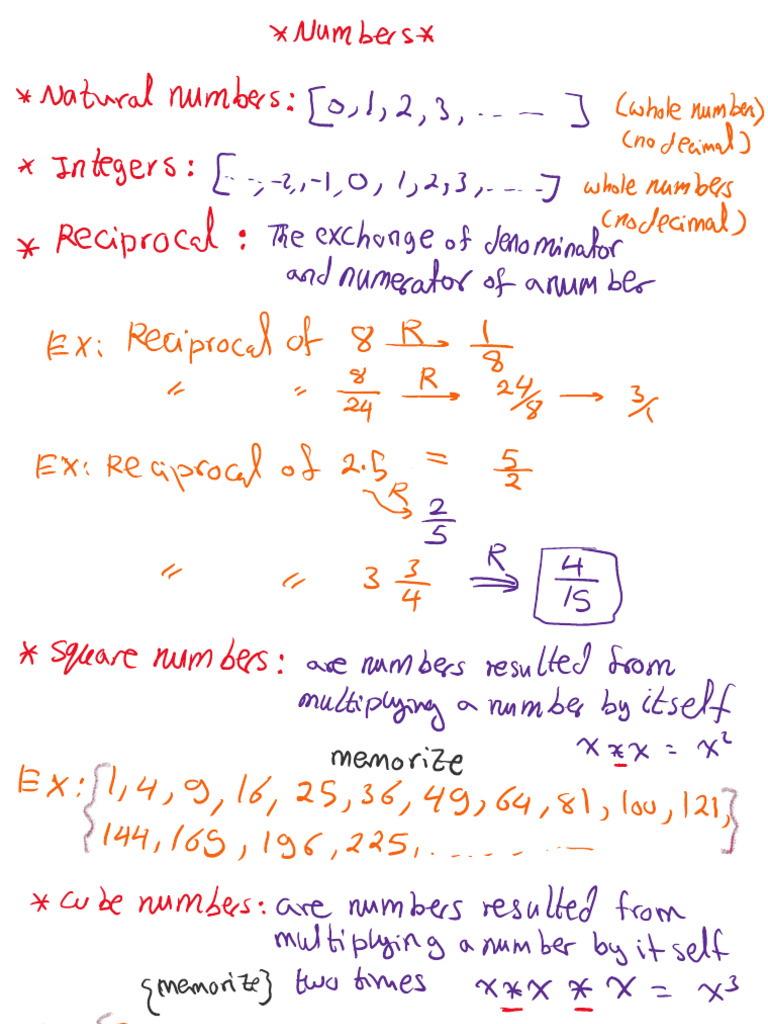 *Numbers*
* Natural numbers: [0, 1, 2, 3, ....— ] (whole number)
(no decimal)
* Integers: [...,-2,-1, 0, 1, 2, 3, .....] whole numbers
(no decimal)
* Reciprocal: The exchange of denominator
and numerator of a number
EX: Reciprocal of 8 R→ 1/8
" " 8/24 R→ 24/8 → 3/1
EX: Reciprocal of 2.5 = 5/2
R→ 2/5
" " 3 3/4 R⇒ 4/15
* Square numbers: are numbers resulted from
multiplying a number by itself
x * x = x²
memorize
EX: {1, 4, 9, 16, 25, 36, 49, 64, 81, 100, 121,
144, 169, 196, 225, ........—}
* Cube numbers: are numbers resulted from
multiplying a number by it self
{memorize} two times x * x * x = x³